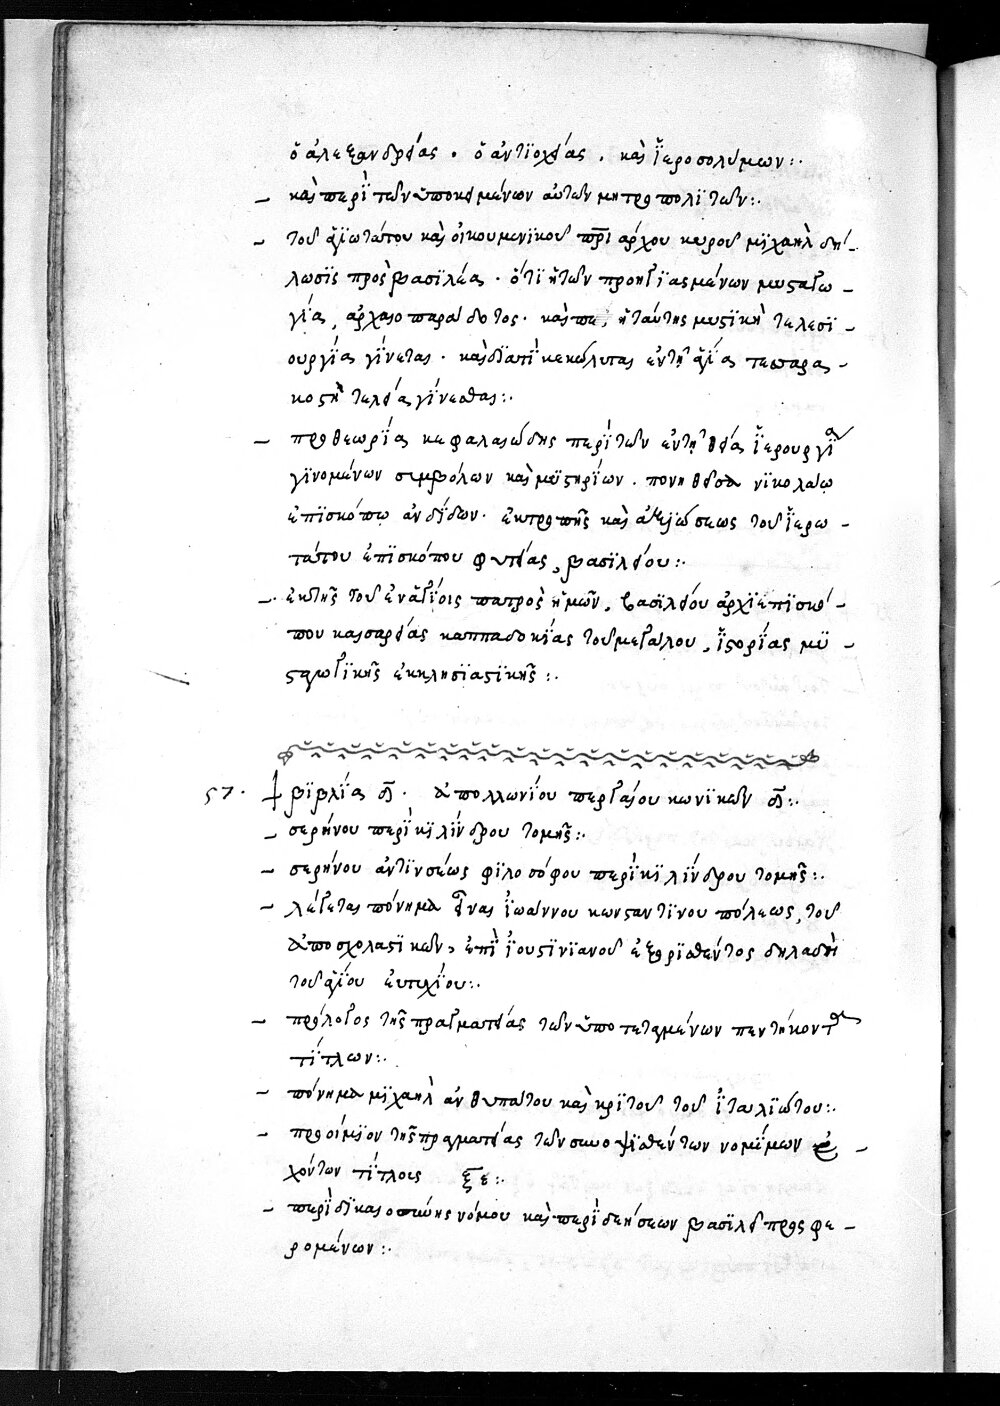 ὁ ἀλεξανδρείας . ὁ ἀντιοχείας . καὶ ἱεροσολύμων :.
– καὶ περὶ τῶν ὑποκειμένων αὐτῶν μητροπολιτῶν :.
– τοῦ ἁγιωτάτου καὶ οἰκουμενικοῦ πρι άρχου κυροῦ μιχαὴλ δή–
λωσις πρὸς βασιλέα . ὅτι ἡ τῶν προηγιασμένων μυσταγω –
γία, ἀρχαιοπαράδοτος . καὶ ἡ ταύτης μυστικὴ τελεσι –
ουργία γίνεται . καὶ διατί κεκώλυται ἐν τῇ ἁγία τεσσαρα –
κοστῇ τελεία γίνεσθαι :.
– προθεωρία κεφαλαιώδης περὶ τῶν ἐν τῇ θεία ἱερουργία
γινομένων συμβόλων καὶ μυστηρίων . πονηθεῖσα νικολάω
ἐπισκόπω ἀνδίδων . ἐκ προτροπῆς καὶ ἀξιώσεως τοῦ ἱερω –
τάτου ἐπισκόπου φυτείας, βασιλείου :.
–. ἐκ τῆς τοῦ ἐν ἁγίοις πατρὸς ἡμῶν, βασιλείου ἀρχιεπισκό –
που καισαρείας καππαδοκίας τοῦ μεγάλου, ἱστορίας μυ –
σταγωγικῆς ἐκκλησιαστικῆς :.
57. βιβλία η̅ . ἀπολλωνίου περγαίου κωνικῶν η̅ :.
– σερήνου περὶ κιλίνδρου τομῆς :.
– σερήνου ἀντινσέως φιλοσόφου περὶ κιλίνδρου τομῆς :.
– λέγεται πόνημα εἶναι ἰωάννου κωνσταντίνου πόλεως, τοῦ
ἀπο σχολαστικῶν, ἐπὶ ἰουστινιανοῦ ἐξορισθέντος δηλαδὴ
τοῦ ἁγίου εὐτυχίου :.
– πρόλογος τῆς πραγματείας τῶν ὑποτεταγμένων πεντήκοντα
τίτλων :.
– πόνημα μιχαὴλ ἀνθυπάτου καὶ κριτοῦ τοῦ ἰταλιώτου :.
– προοίμιον τῆς πραγματείας τῶν συνοψισθέντων νομίμων ἐ –
χόντων τίτλοις ξε :.
– περὶ δικαιοσύνης νόμου καὶ περὶ δεήσεων βασιλεῖ προσφε –
ρομένων :.